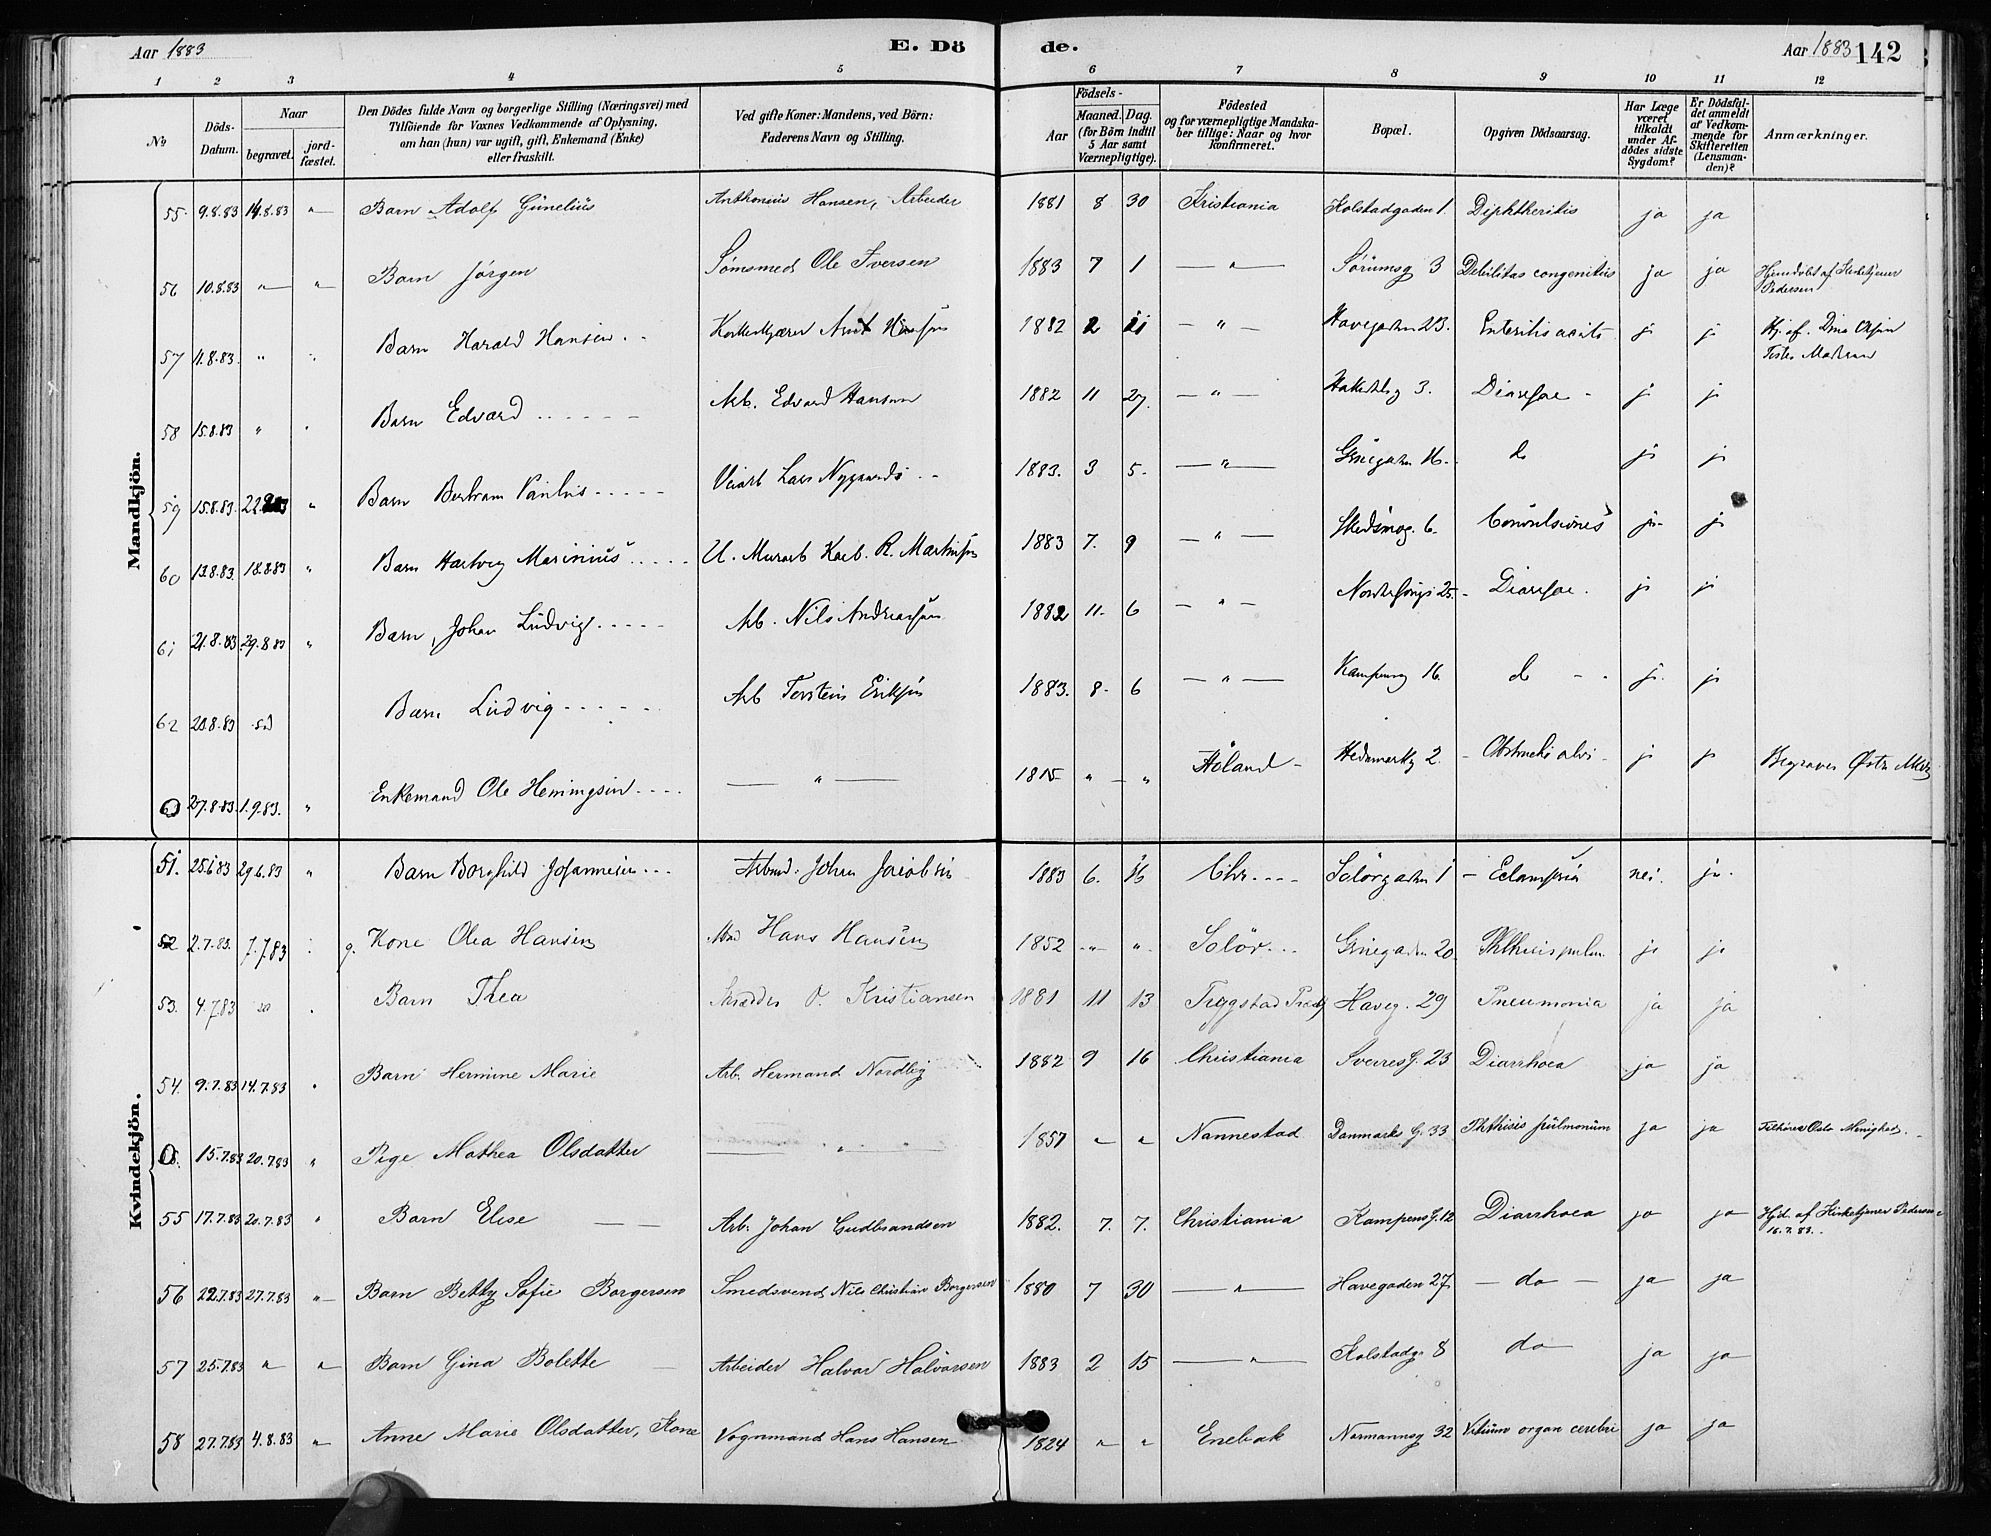 Aar 1883 E. Dö de. Aar 1883 142
1 2 3 4 5 6 7 8 9 10 11 12
No
Döds-Datum.
Naar
begravet.
jord-fæstet.
Den Dödes fulde Navn og borgerlige Stilling (Næringsvei) med
Tilföiende for Voxnes Vedkommende af Oplysning,
om han (hun) var ugift, gift, Enkemand (Enke)
eller fraskilt.
Ved gifte Koner: Mandens, ved Börn:
Faderens Navn og Stilling.
Födsels-
Aar
Maaned. Dag.
(for Börn indtil
5 Aar samt
Værnepligtige).
Födested
og for værnepligtige Mandska-
ber tillige: Naar og hvor
konfirmeret.
Bopæl.
Opgiven Dödsaarsag.
Har Læge
været
tilkaldt
under Af-
dödes sidste
Sygdom?
Er Dödsfal-
det anmeldt
af Vedkom-
mende for
Skifteretten
(Lensman-
den)?
Anmærkninger.
Mandkjön.
55 9.8.83 14.8.83 " Barn Adolf Günelius Anthonius Hansen, Arbeider 1881 8 30 Kristiania Kolstadgaden 1. Diphtheritis ja ja
56 10.8.83 " " Barn Jørgen Sömsmed Ole Iversen 1883 7 1 " Sörumsg 3 Debilitas congenitus ja ja Hjemdöbt af Kirketjener
Pedersen
57 11.8.83. " " Barn Harald Hansen 1882 2 21 " Havegaden 23. Enteritis acuta j j Hj. af
58 15.8.83 " " Barn Edvard Arb. Edvard Hansen 1882 11 27. " 3. Diarrhoe j j
59 15.8.83. " Barn Bertram Lars Nygaard 1883. 3 5. " Grönegaden 16. do j j
60 13.8.83. 18.8.83 " Barn Hartvig Marinius U. Murarb Karl. R. Martinsen 1883 7. 9 " Skedsmog. 6. Convulsiones ja j
61 21.8.83 29.8.83 " Barn, Johan Ludvig Arb. Nils Andreassen 1882 11. 6 " 25. Diarrhoe. j j
62 20.8.83 Barn Ludvig Arb Torstein Eriksen 1883. 8. 6 " Kampeng 16. do j. j
63 27.8.83. 1.9.83. " Enkemand Ole Henningsen " 1815 " " Höland Hedemarkg 2. Obstructio alvi j j Begraves Östre
Kvindekjön.
51. 25.6.83 29.6.83 " Barn Borghild Johannesen Arbmd. Johan Jacobsen 1883 6. 16 Chr. Solörgaden 1 Eclampsia nei. ja.
52 2.7.83. 7.7.83 g. Kone Olea Hansen Hans Hansen 1852 " " Solör Grönegaden 20. Phthisis pulm. j j
53. 4.7.83 Barn Thea Skrædder O. Kristiansen 1881 11 13 Tryggstad Haveg. 29 Pneumonia ja ja
54. 9.7.83 14.7.83 " Barn Hermine Marie Arb. Hermand Nordby 1882 9 16 Christiania SverresG. 23 Diarrhoea ja ja
15.7.83 20.7.83 " Pige Mathea Olsdatter " 1857 " " Nannestad Danmarks G. 33 Phthisis pulmonum ja ja Tilhörer Oslo Menighed.
55 17.7.83 20.7.83 " Barn Elise Arb. Johan Gudbrandsen 1882. 7. 7. Christiania KampensG. 12 Diarrhoea ja ja Hjd. af Kirketjener Pedersen
16.7.83.
56 22.7.83 27.7.83 " Barn Betty Sofie Borgersen Smedsvend Nils Christian Borgersen 1880 7 30 " Havegaden 27 do ja ja
57 25.7.83 " " Barn Gina Bolette Arbeider Halvor Halvorsen 1883 2 15 " Kolstadg. 8 do ja ja
58 27.7.83 4.8.83 " Anne Marie Olsdatter, Kone Vognmand Hans Hansen 1824 " " Enebak Normannsg 32 Vitium organ cerebri ja ja